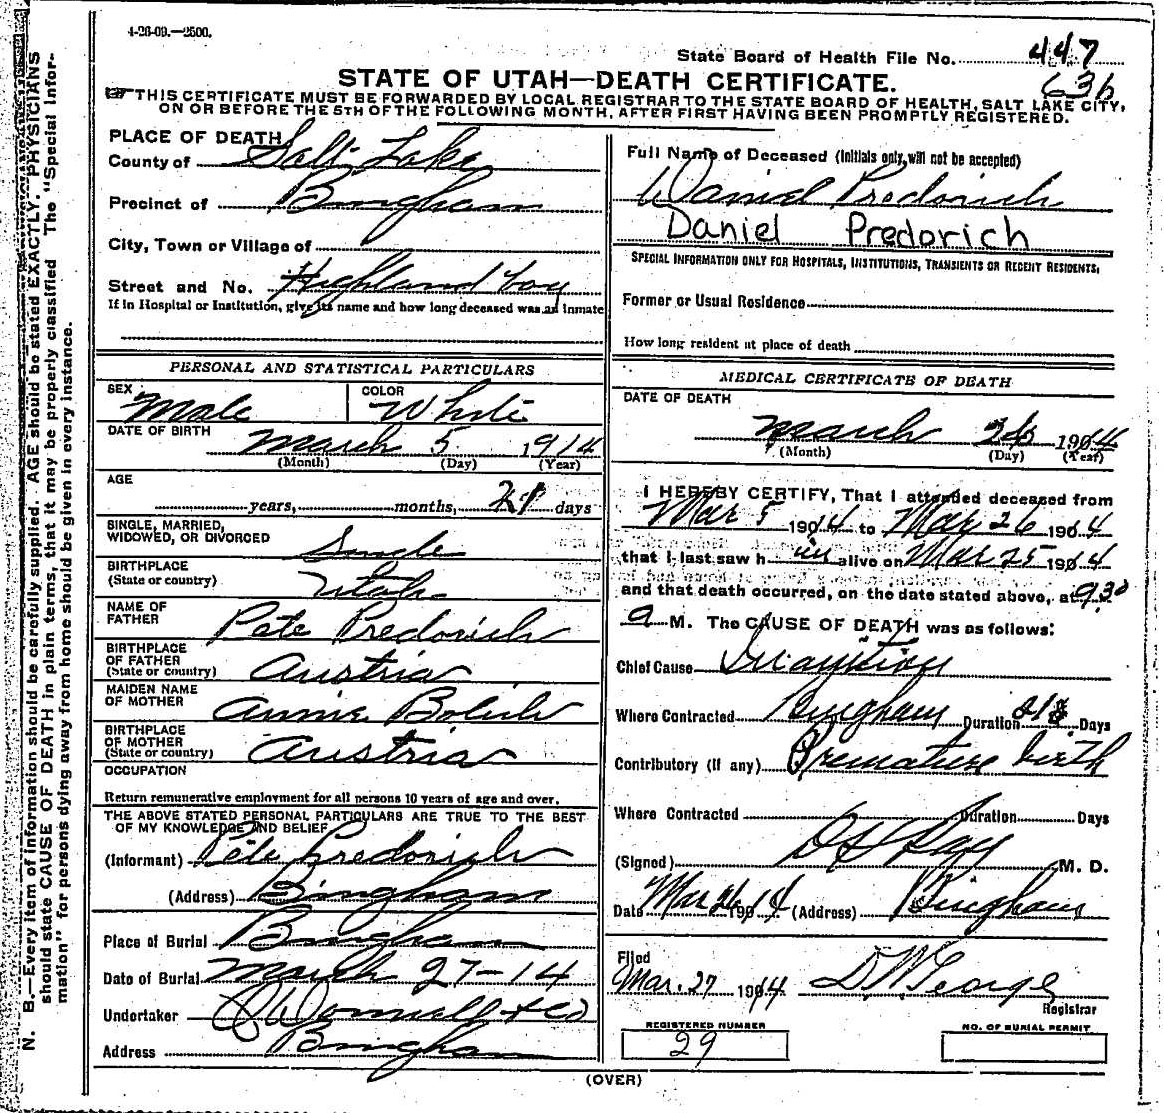 4-26-09.—2500.
State Board of Health File No. 447
636
STATE OF UTAH—DEATH CERTIFICATE.
THIS CERTIFICATE MUST BE FORWARDED BY LOCAL REGISTRAR TO THE STATE BOARD OF HEALTH, SALT LAKE CITY,
ON OR BEFORE THE 5TH OF THE FOLLOWING MONTH, AFTER FIRST HAVING BEEN PROMPTLY REGISTERED.
PLACE OF DEATH
County of Salt Lake
Precinct of Bingham
City, Town or Village of
Street and No. Highland Boy
If in Hospital or Institution, give its name and how long deceased was an inmate
PERSONAL AND STATISTICAL PARTICULARS
SEX Male
COLOR White
DATE OF BIRTH March 5 1914
(Month) (Day) (Year)
AGE
years, months, 21 days
SINGLE, MARRIED,
WIDOWED, OR DIVORCED Single
BIRTHPLACE
(State or country) Utah
NAME OF
FATHER Pete Predorich
BIRTHPLACE
OF FATHER
(State or country) Austria
MAIDEN NAME
OF MOTHER Annie
BIRTHPLACE
OF MOTHER
(State or country) Austria
OCCUPATION
Return remunerative employment for all persons 10 years of age and over.
THE ABOVE STATED PERSONAL PARTICULARS ARE TRUE TO THE BEST
OF MY KNOWLEDGE AND BELIEF
(Informant) Pete Predorich
(Address) Bingham
Place of Burial Bingham
Date of Burial March 27-14
Undertaker O'Donnell & Co
Address Bingham
Full Name of Deceased (Initials only, will not be accepted)
Daniel Predorich
Daniel Predorich
SPECIAL INFORMATION ONLY FOR HOSPITALS, INSTITUTIONS, TRANSIENTS OR RECENT RESIDENTS.
Former or Usual Residence
How long resident at place of death
MEDICAL CERTIFICATE OF DEATH
DATE OF DEATH
March 26 1914
(Month) (Day) (Year)
I HEREBY CERTIFY, That I attended deceased from
Mar 5 1914 to Mar 26 1914
that I last saw him alive on Mar 25 1914
and that death occurred, on the date stated above, at 9.30
a M. The CAUSE OF DEATH was as follows:
Chief Cause Inanition
Where Contracted Bingham Duration 21 Days
Contributory (if any) Premature birth
Where Contracted Duration Days
(Signed) M. D.
Date Mar 26 1914 (Address) Bingham
Filed
Mar. 27 1914 D. W. George
Registrar
REGISTERED NUMBER
29
NO. OF BURIAL PERMIT
(OVER)
N. B.—Every item of information should be carefully supplied. AGE should be stated EXACTLY. PHYSICIANS
should state CAUSE OF DEATH in plain terms, that it may be properly classified. The "Special Infor-
mation" for persons dying away from home should be given in every instance.